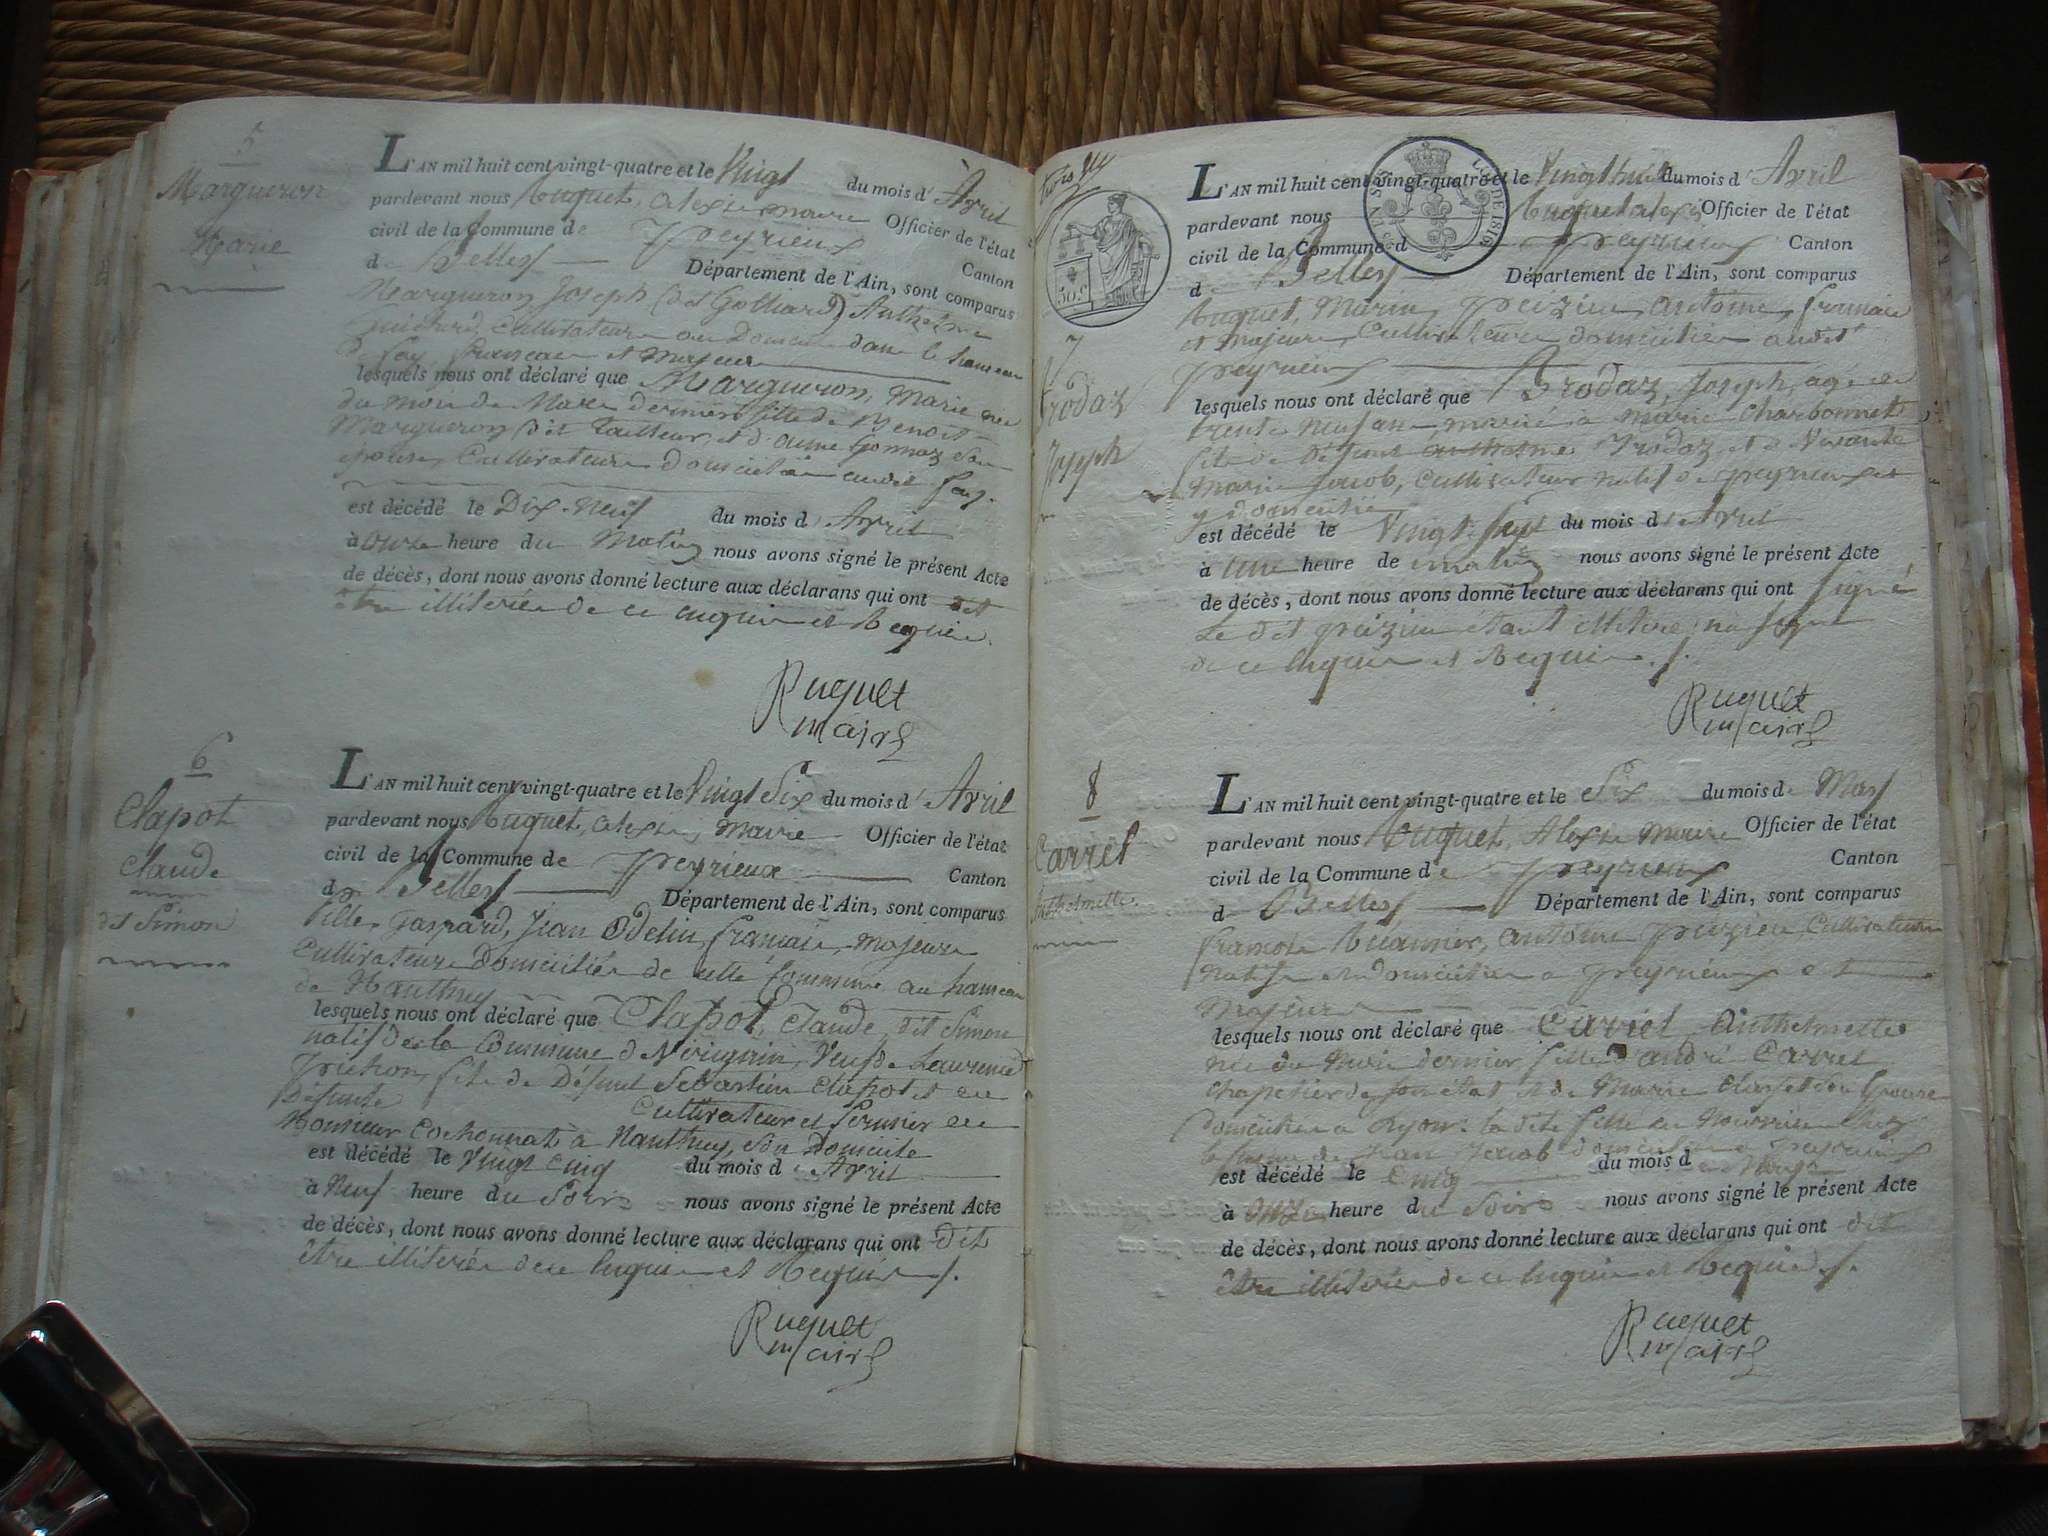 5
Margueron
Marie
L'AN mil huit cent vingt-quatre et le Vingt du mois d'Avril
pardevant nous Ruquet, alexis maire Officier de l'état
civil de la Commune de Peyrieux Canton
de Belley Département de l'Ain, sont comparus
Margueron Joseph (dit Golliard) Anthelme
cultivateurs au dans le hameau
de fay, français et Majeurs
lesquels nous ont déclaré que Margueron, Marie née
du mois de Mars dernier fille de Benoit
Margueron dit tailleur, et d' Gonnaz son
épouse, Cultivateurs audit fay.
est décédé le Dix-Neuf du mois d'Avril
à onze heure du Matin nous avons signé le présent Acte
de décès, dont nous avons donné lecture aux déclarans qui ont dit
être de ce enquis et Requis.
Ruquet
maire
6
Clapot
Claude
dt Simon
L'AN mil huit cent vingt-quatre et le Vingt Six du mois d'Avril
pardevant nous Ruquet, alexis, maire Officier de l'état
civil de la Commune de Peyrieux Canton
de Belley Département de l'Ain, sont comparus
Gaspard, Jean Odelin, français, majeurs
Cultivateurs Domiciliés de cette Commune au hameau
de Nanthuy
lesquels nous ont déclaré que Clapot, Claude, dit Simon
natif de la Commune de Virignin, Veuf de Laurence
fils de Défunt Sébastien Clapot et de
Défunte Cultivateur et fermier de
Monsieur Cochonnat à Nanthuy, son Domicile
est décédé le Vingt Cinq du mois d'Avril
à Neuf heure du Soir nous avons signé le présent Acte
de décès, dont nous avons donné lecture aux déclarans qui ont dit
être de ce Enquis et Requis.
Ruquet
maire
50 c
LOI DE 1816
7
Brodaz
Joseph
L'AN mil huit cent vingt-quatre et le Vingt huit du mois d'Avril
pardevant nous Ruquet alexis Officier de l'état
civil de la Commune d Peyrieux Canton
de Belley Département de l'Ain, sont comparus
Ruquet, Marin, Peizieu antoine, français
et majeurs, Cultivateurs domiciliés audit
Peyrieux
lesquels nous ont déclaré que Brodaz, Joseph, agé de
trente Neuf ans marié à marie Charbonnet,
fils de Défunt anthelme Brodaz, et de Vivante
Marie Jacob, Cultivateur natif de Peyrieux et
y domicilié
est décédé le Vingt Sept du mois d'Avril
à une heure de matin nous avons signé le présent Acte
de décès, dont nous avons donné lecture aux déclarans qui ont signé
Le dit Peizieu étant na signé
de ce Enquis et Requis.
Ruquet
maire
8
Carret
Anthelmette
L'AN mil huit cent vingt-quatre et le Six du mois de May
pardevant nous Ruquet, Alexis Maire Officier de l'état
civil de la Commune de Peyrieux Canton
de Belley Département de l'Ain, sont comparus
François antoine Peizieu, Cultivateurs
natifs et domiciliés a Peyrieux et
Majeurs
lesquels nous ont déclaré que Carret Anthelmette
née du Mois dernier, fille d'andré Carret
Chapelier de son état et de Marie son Epouse
Domiciliés a Lyon: la dite fille en Nourrice chez
la femme de Jean Jacob domicilié à Peyrieux
est décédé le Cinq du mois d
à onze heure du Soir nous avons signé le présent Acte
de décès, dont nous avons donné lecture aux déclarans qui ont dit
être de ce Enquis et Requis.
Ruquet
maire